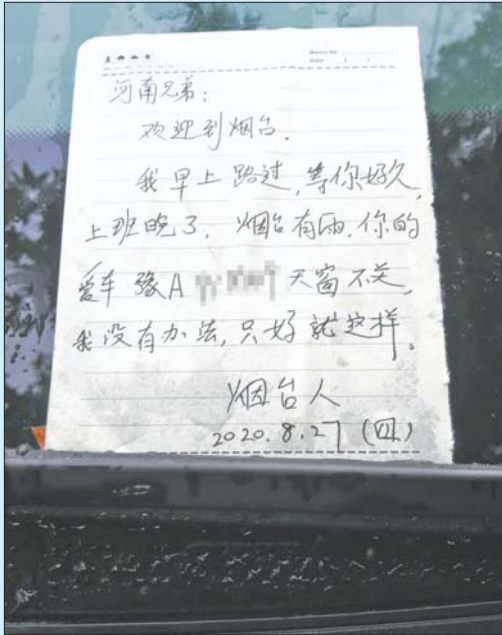 河南兄弟:
欢迎到烟台.
我早上路过,等你好久,
上班晚了.烟台有雨,你的
爱车 豫A 天窗不关,
我没有办法,只好就这样。
烟台人
2020.8.27 (四)